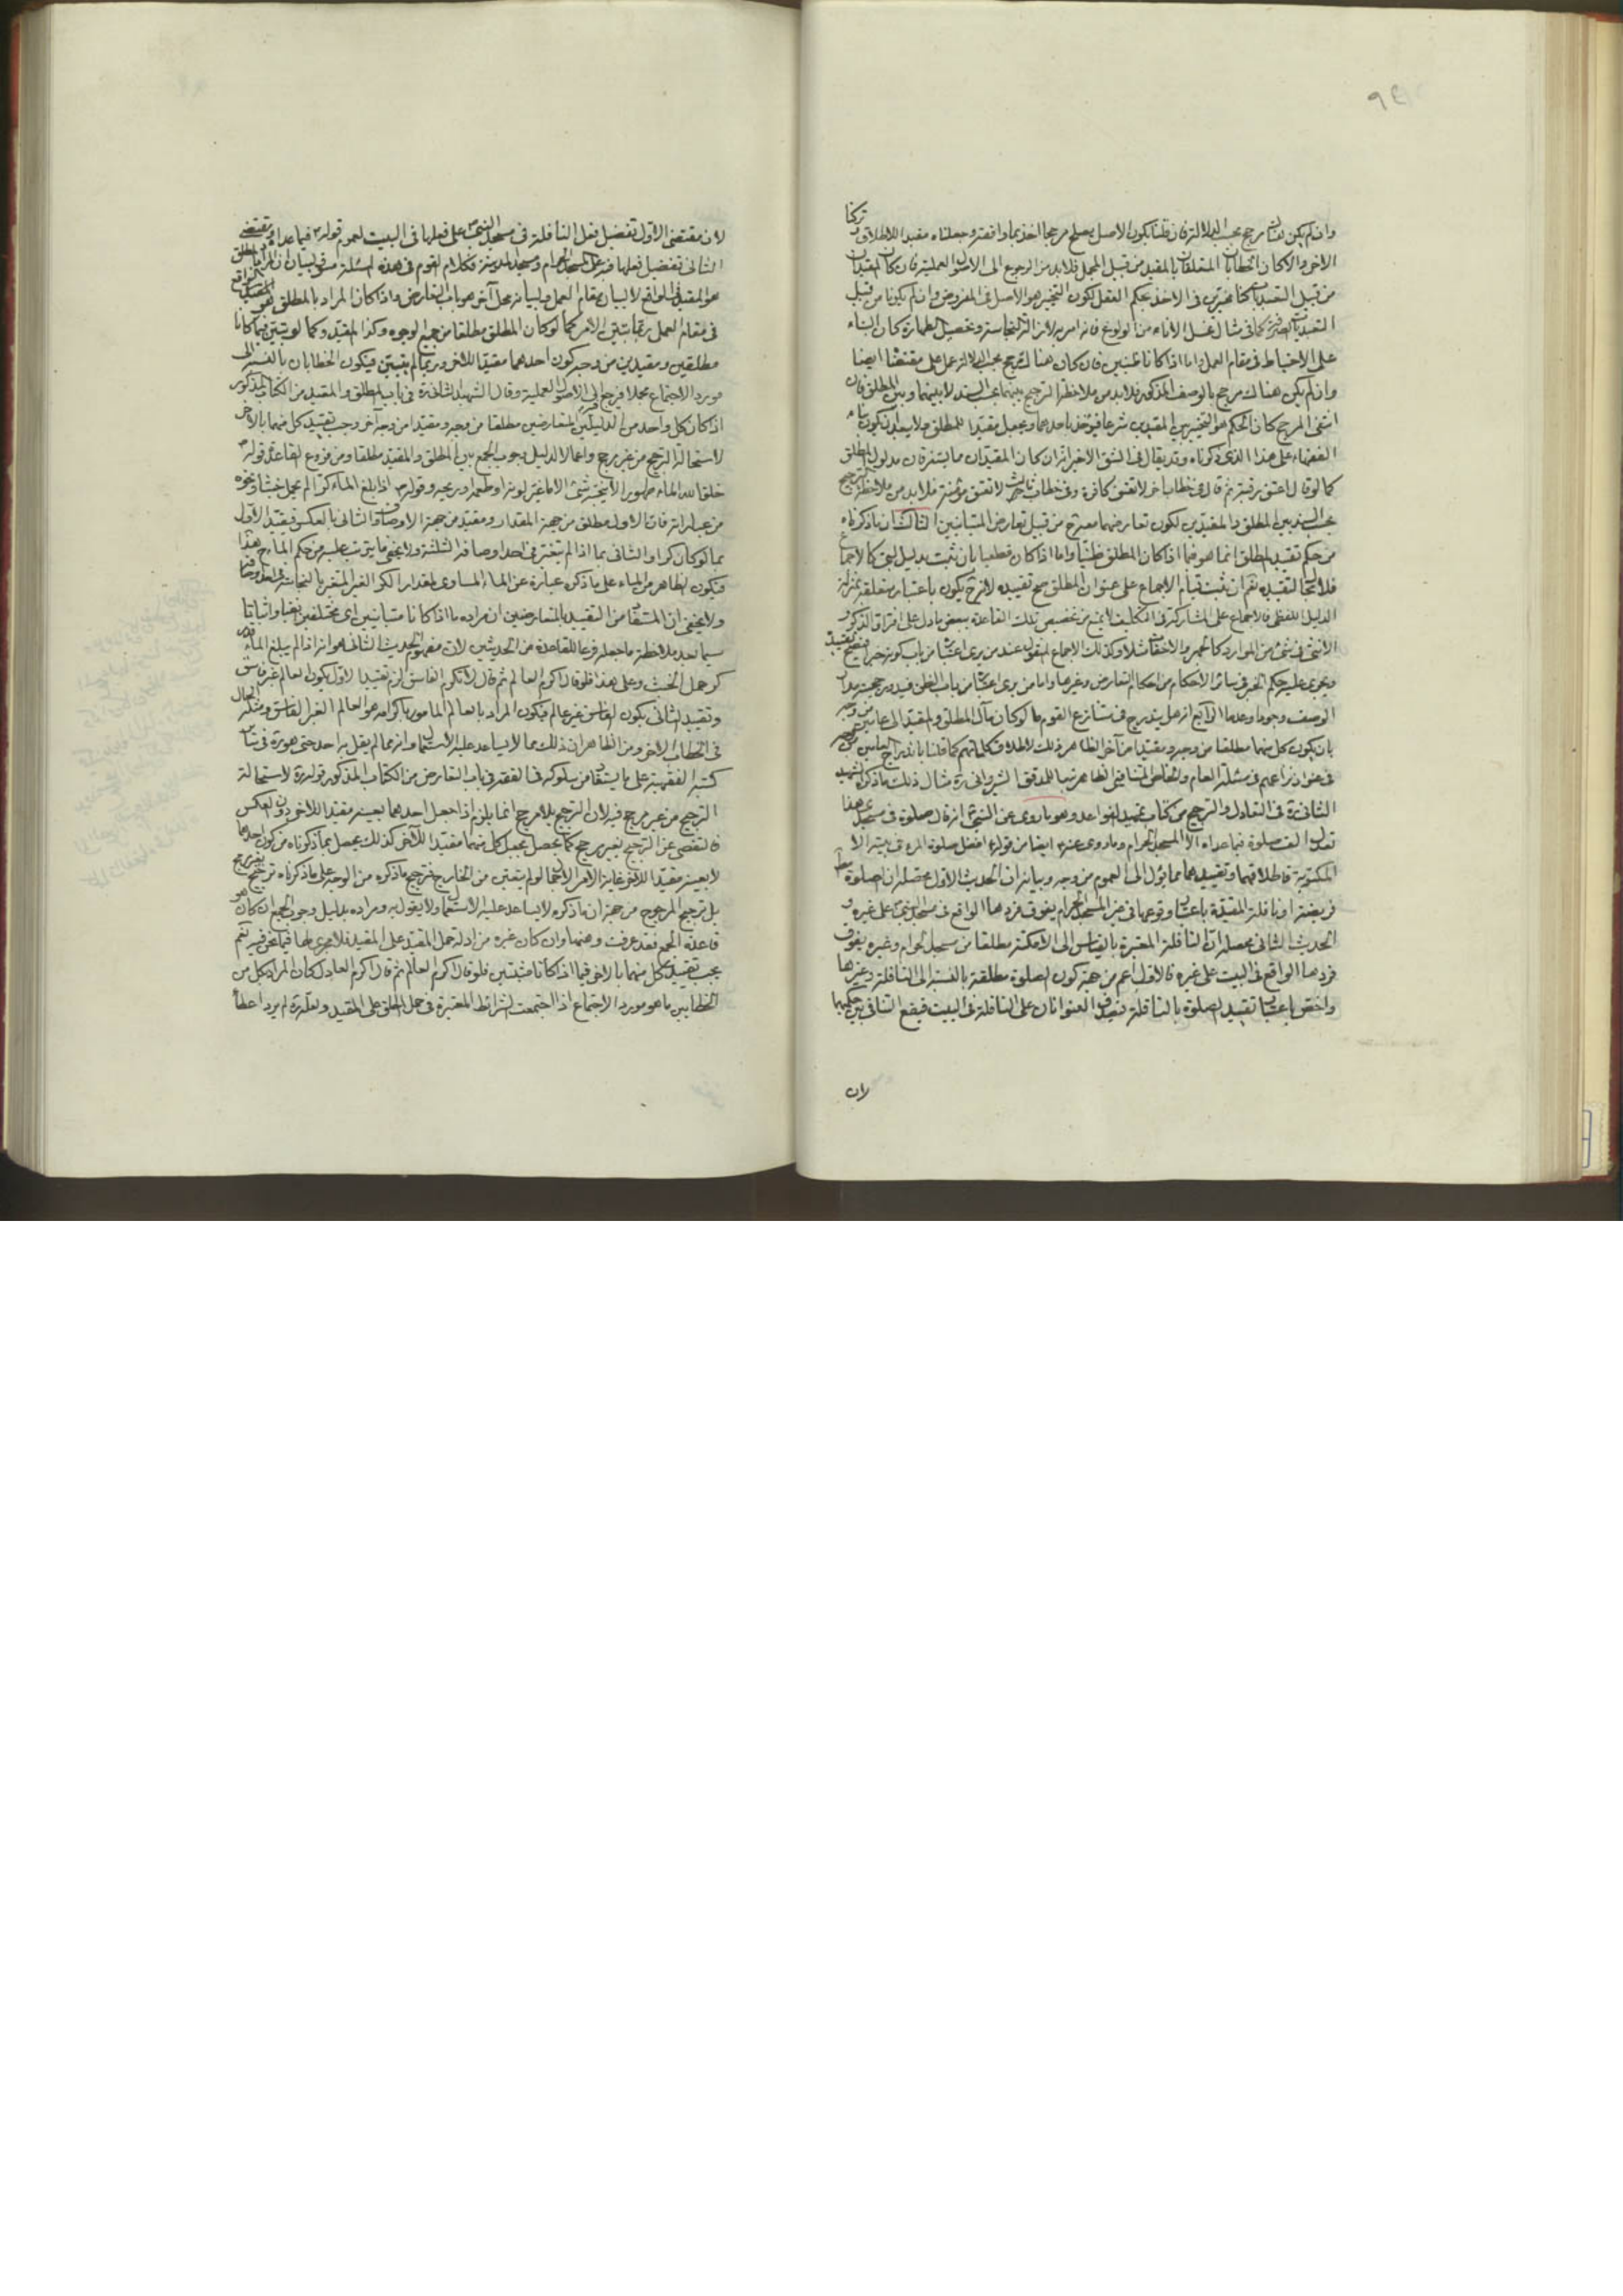 وان لم يكن لقائل مرجح بحسب الدلالة فان قلنا بكون الاصل يصلح مرجحا اخذ بما وافقه وجعلناه مقيدا للاطلاق وتركنا
الاخر والا كان الخطابان المتعلقان بالمقيد من قبيل المجمل فلا بد من الرجوع الى الاصول العملية فان كان المقيدان
من قبيل التعبديات كنا مخيرين فى الاخذ بحكم العقل لكون التخيير هو الاصل فى المفروض وان لم يكونا من قبيل
التعبديات الصرفة كما فى مثال غسل الاناء من الولوغ فانه امر به لازالة النجاسة وتحصيل الطهارة كان البناء
على الاحتياط فى مقام العمل واما اذا كانا ظنيين فان كان هناك ترجيح بحسب الدلالة عمل على مقتضاها ايضا
وان لم يكن هناك مرجح بالوصف المذكور فلا بد من ملاحظة الترجيح بينهما بحسب السند لا بينهما وبين المطلق فان
انتفى المرجح كان الحكم هو التخيير بين المقيدين شرعا فيؤخذ باحدهما ويجعل مقيدا للمطلق ولا يبعد ان يكون بناء
الفقهاء على هذا الذى ذكرناه وقد يقال فى الشق الاخير انه ان كان المقيدان مما يستغرقان مدلول المطلق
كما لو قال اعتق رقبة ثم قال فى خطاب اخر لا تعتق كافرة وفى خطاب ثالث لا تعتق مؤمنة فلا بد من ملاحظة الترجيح
بحسب السند بين المطلق والمقيدين لكون تعارضهما معه ح من قبيل تعارض المتباينين الثالث ان ما ذكرناه
من حكم تقييد المطلق انما هو فيما اذا كان المطلق ظنيا واما اذا كان قطعيا بان ثبت بدليل لبى كالاجماع
فلا مجال لتقييده نعم ان ثبت قيام الاجماع على عنوان المطلق صح تقييده لانه ح يكون باعتبار متعلقه بمنزلة
الدليل اللفظى فالاجماع على المشاركة فى التكليف لا يمنع من تخصيص تلك القاعدة ببعض ما دل على افتراق الذكر و
الانثى فى شئ من الموارد كالجهر والاخفات مثلا وكذلك الاجماع المنقول عند من يرى اعتباره من باب كونه خبرا فيصح تقييده
ويجرى عليه حكم الخبر فى سائر الاحكام من احكام التعارض وغيرها واما من يرى اعتباره من باب الظن فيدور حجيته مدار
الوصف وجودا وعدما الرابع انه هل يندرج فى متنازع القوم ما لو كان مآل المطلق والمقيد الى عامين من وجه
بان يكون كل منهما مطلقا من وجه ومقيدا من آخر الظاهر ذلك لاطلاق كلماتهم كما قلنا باندراج العامين من وجه
فى عنوان نزاعهم فى مسئلة العام والخاص المتنافيى الظاهر تبعا للمدقق الشيروانى ره مثال ذلك ما ذكره الشهيد
الثانى ره فى التعادل والترجيح من كتاب تمهيد القواعد وهو ما روى عن النبى ص انه قال صلوة فى مسجدى هذا
تعدل الف صلوة فيما عداه الا المسجد الحرام وما روى عنه ص ايضا من قوله افضل صلوة المرء فى بيته الا
المكتوبة فاطلاقهما وتقييدهما مما يؤل الى العموم من وجه وبيانه ان الحديث الاول محصله ان الصلوة
فريضة او نافلة المقيدة باعتبار وقوعها فى غير المسجد الحرام يفوق فردها الواقع فى مسجد النبى ص على غيره و
الحديث الثانى محصله ان النافلة المعتبرة بالقياس الى الامكنة مطلقا من مسجد الحرام وغيره يفوق
فردها الواقع فى البيت على غيره فالاول اعم من جهة كون الصلوة مطلقة بالنسبة الى النافلة وغيرها
واخص باعتبار تقييد الصلوة بالنافلة فيصدق العنوانان على النافلة فى البيت فيقع التنافى بين حكميهما
لان
لان مقتضى الاول تفضيل فعل النافلة فى مسجد النبى ص على فعلها فى البيت لعموم قوله ص فيما عداه ومقتضى
الثانى تفضيل فعلها فيه على المسجد الحرام ومسجد المدينة فكلام القوم فى هذه المسئلة مسوق لبيان ان المراد بالمطلق
هو المقيد فى الواقع لا لبيان مقام العمل ولبيانه محل آخر هو باب التعارض واذا كان المراد بالمطلق هو المقيد
فى مقام العمل ربما يتبين الامر كما لو كان المطلق مطلقا من جميع الوجوه وكذا المقيد وكما لو تبين فيما كانا
مطلقين ومقيدين من وجه كون احدهما مقيدا للاخر وربما لم يتبين فيكون الخطابان بالنسبة الى
مورد الاجتماع مجملا فيرجع الى الاصول العملية وقال الشهيد الثانى ره فى باب المطلق والمقيد من الكتاب المذكور
اذا كان كل واحد من الدليلين المتعارضين مطلقا من وجه ومقيدا من وجه آخر وجب تقييد كل منهما بالاخر
لاستحالة الترجيح من غير مرجح واعمالا لدليل وجوب الجمع بين المطلق والمقيد مطلقا ومن فروع القاعدة قوله ص
خلق الله الماء طهورا لا ينجسه شئ الا ما غير لونه او طعمه او ريحه وقوله ص اذا بلغ الماء كرا لم يحمل خبثا ونحوه
من عباراته فان الاول مطلق من جهة المقدار ومقيد من جهة الاوصاف والثانى بالعكس فيقيد الاول
بما لو كان كرا والثانى بما اذا لم يتغير فى احد اوصافه الثلثة ولا يخفى ما يترتب عليه من حكم الماء ح هذا
فيكون الطاهر من المياه على ما ذكره عبارة عن الماء المساوى لمقدار الكر الغير المتغير بالنجاسة
ولا يخفى ان المستفاد من التقييد بالمتعارضين ان مراده ما اذا كانا متباينين اى مختلفين نفيا واثباتا
سيما بعد ملاحظة ما جعله فرعا للقاعدة من الحديثين لان مفهوم الحديث الثانى هو انه اذا لم يبلغ الماء قدر
كر حمل الخبث وعلى هذا فلو قال اكرم العالم ثم قال لا تكرم الفاسق لزم تقييد الاول بكون العالم غير فاسق
وتقييد الثانى بكون الفاسق غير عالم فيكون المراد بالعالم المامور باكرامه هو العالم الغير الفاسق ومثله الحال
فى الخطاب الاخر ومن الظاهر ان ذلك مما لا يساعد عليه الاستعمال وانه مما لم يقل به احد حتى هو ره فى سائر
كتبه الفقهية على ما يستفاد من سلوكه فى الفقه فى باب التعارض من الكتاب المذكور قوله ره لاستحالة
الترجيح من غير مرجح فيه لان الترجيح بلا مرجح انما يلزم اذا جعل احدهما بعينه مقيدا للاخر دون العكس
فالتفصى عن الترجيح بغير مرجح كما يحصل بجعل كل منهما مقيدا للآخر كذلك يحصل بما ذكرناه من كون احدهما
لا بعينه مقيدا للاخر غاية الامر الاجمال لو لم يتعين من الخارج فترجيح ما ذكره من الوجه على ما ذكرناه ترجيح بغير مرجح
بل ترجيح المرجوح من جهة ان ما ذكره لا يساعد عليه الاستعمال ولا يقول به ومراده بدليل وجوب الجمع ان كان هو
قاعدة الجمع فقد عرفت وهنها وان كان غيره من ادلة حمل المقيد على المقيد فلا مجرى لها فيما نحن فيه نعم
يجب تقييد كل منهما بالاخر فيما اذا كانا مثبتين فلو قال اكرم العالم ثم قال اكرم العادل كان المراد بكل من
الخطابين ما هو مورد الاجتماع اذا اجتمعت الشرائط المعتبرة فى حمل المطلق على المقيد ولعله ره لم يرد اعطاء